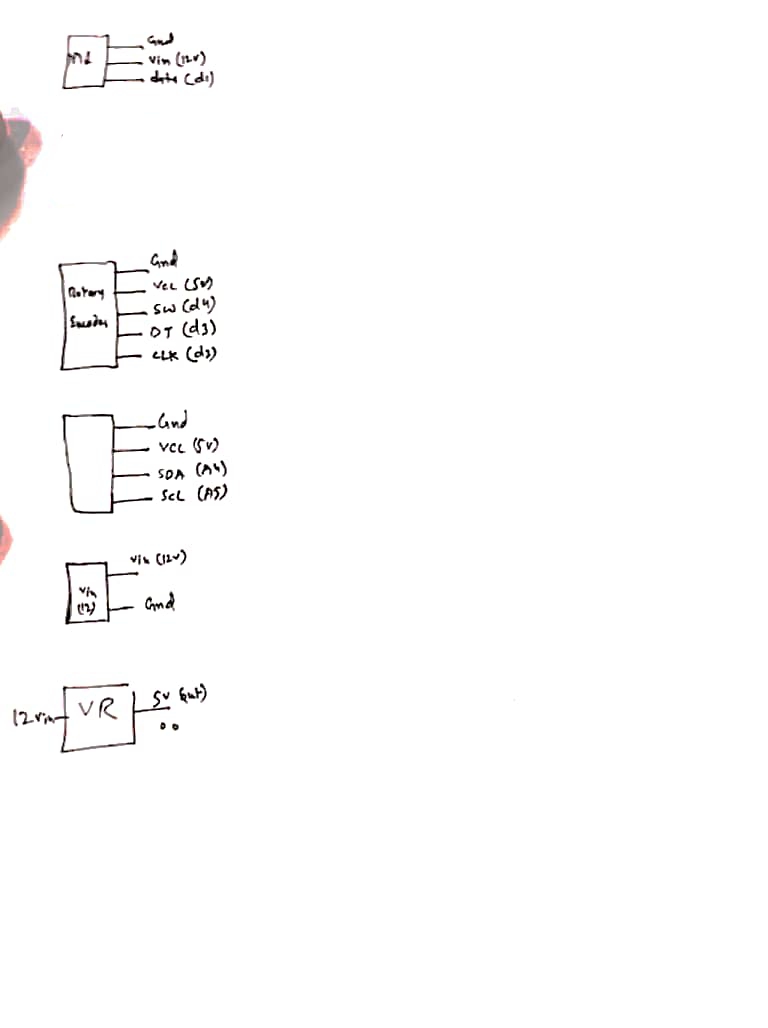 Gnd
Vin (12v)
data (d1)
Gnd
Rotary
Encoder
VCC (5v)
SW (d4)
DT (d3)
CLK (d2)
Gnd
VCC (5v)
SDA (A4)
SCL (A5)
Vin (12v)
Vin
(12)
Gnd
12vin
VR
5v (out)